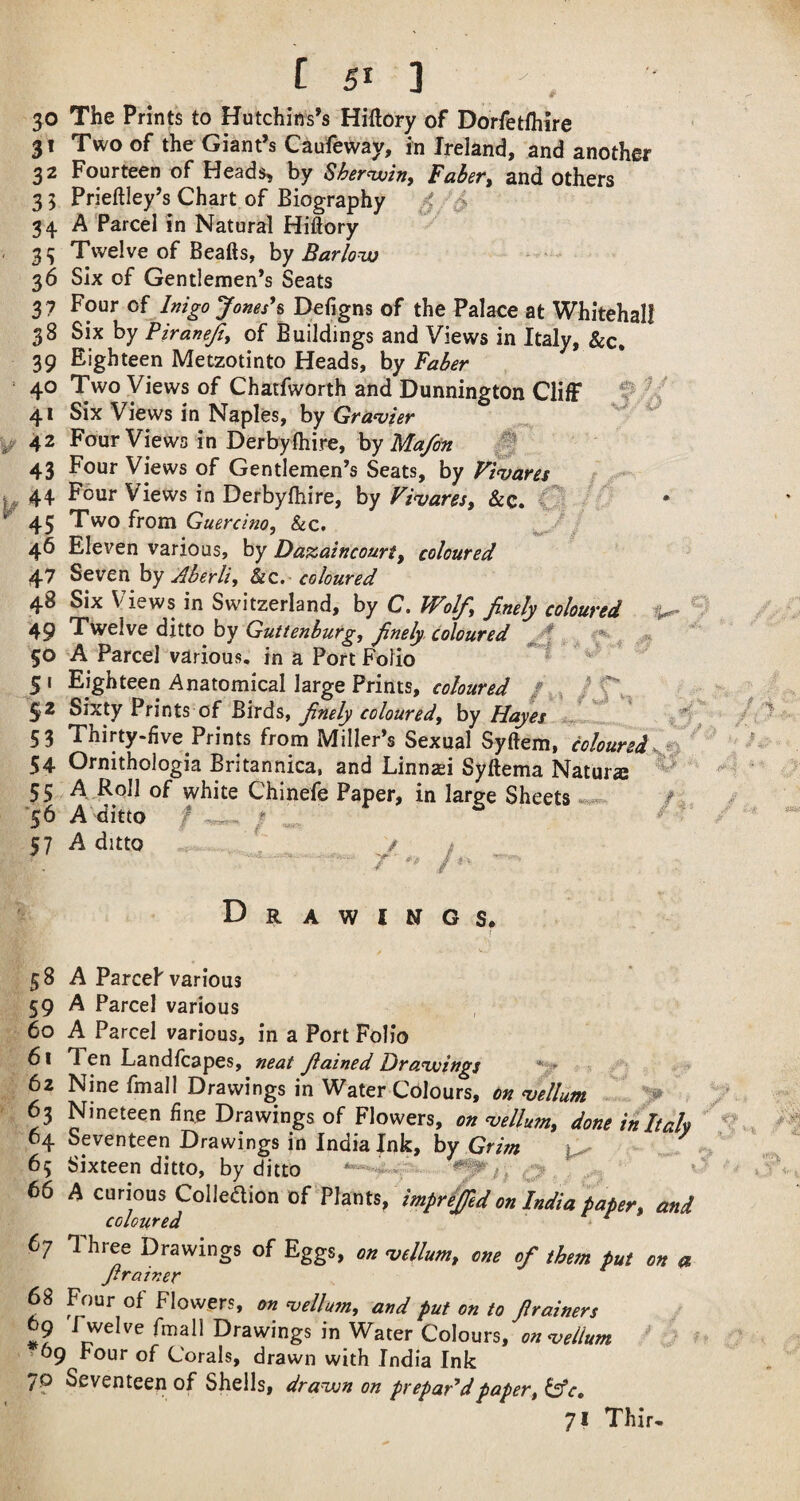 [ 51 ]
30 The Prints to Hutchins's Hiſtory of Dorſetſhire
31 Two of the Giant's Cauſeway, in Ireland, and another
32 Fourteen of Heads, by Sherwin, Faber, and others
33 Prieſtley's Chart of Biography
34 A Parcel in Natural Hiſtory
35 Twelve of Beaſts, by Barlow
36 Six of Gentlemen's Seats
37 Four of Inigo Jones's Deſigns of the Palace at Whitehall
38 Six by Piraneſi, of Buildings and Views in Italy, &c.
39 Eighteen Metzotinto Heads, by Faber
40 Two Views of Chatſworth and Dunnington Cliff
41 Six Views in Naples, by Gravier
42 Four Views in Derbyſhire, by Maſon
43 Four Views of Gentlemen's Seats, by Vivares
44 Four Views in Derbyſhire, by Vivares, &c.
45 Two from Guercino, &c.
46 Eleven various, by Dazaincourt, coloured
47 Seven by Aberli, &c. coloured
48 Six Views in Switzerland, by C. Wolf, finely coloured
49 Twelve ditto by Guttenburg, finely coloured
50 A Parcel various. in a Port Folio
51 Eighteen Anatomical large Prints, coloured
52 Sixty Prints of Birds, finely coloured, by Hayes
53 Thirty-five Prints from Miller's Sexual Syſtem, coloured
54 Ornithologia Britannica, and Linnæi Syſtema Naturæ
55 A Roll of white Chineſe Paper, in large Sheets
56 A ditto
57 A ditto
DRAWINGS.
58 A Parcel various
59 A Parcel various
60 A Parcel various, in a Port Folio
61 Ten Landſcapes, neat ſtained Drawings
62 Nine ſmall Drawings in Water Colours, on vellum
63 Nineteen fine Drawings of Flowers, on vellum, done in Italy
64 Seventeen Drawings in India Ink, by Grim
65 Sixteen ditto, by ditto
66 A curious Collection of Plants, impreſſed on India paper, and
coloured
67 Three Drawings of Eggs, on vellum, one of them put on a
ſtrainer
68 Four of Flowers, on vellum, and put on to ſtrainers
69 Twelve ſmall Drawings in Water Colours, on vellum
*69 Four of Corals, drawn with India Ink
70 Seventeen of Shells, drawn on prepar'd paper, &c.
71 Thir-